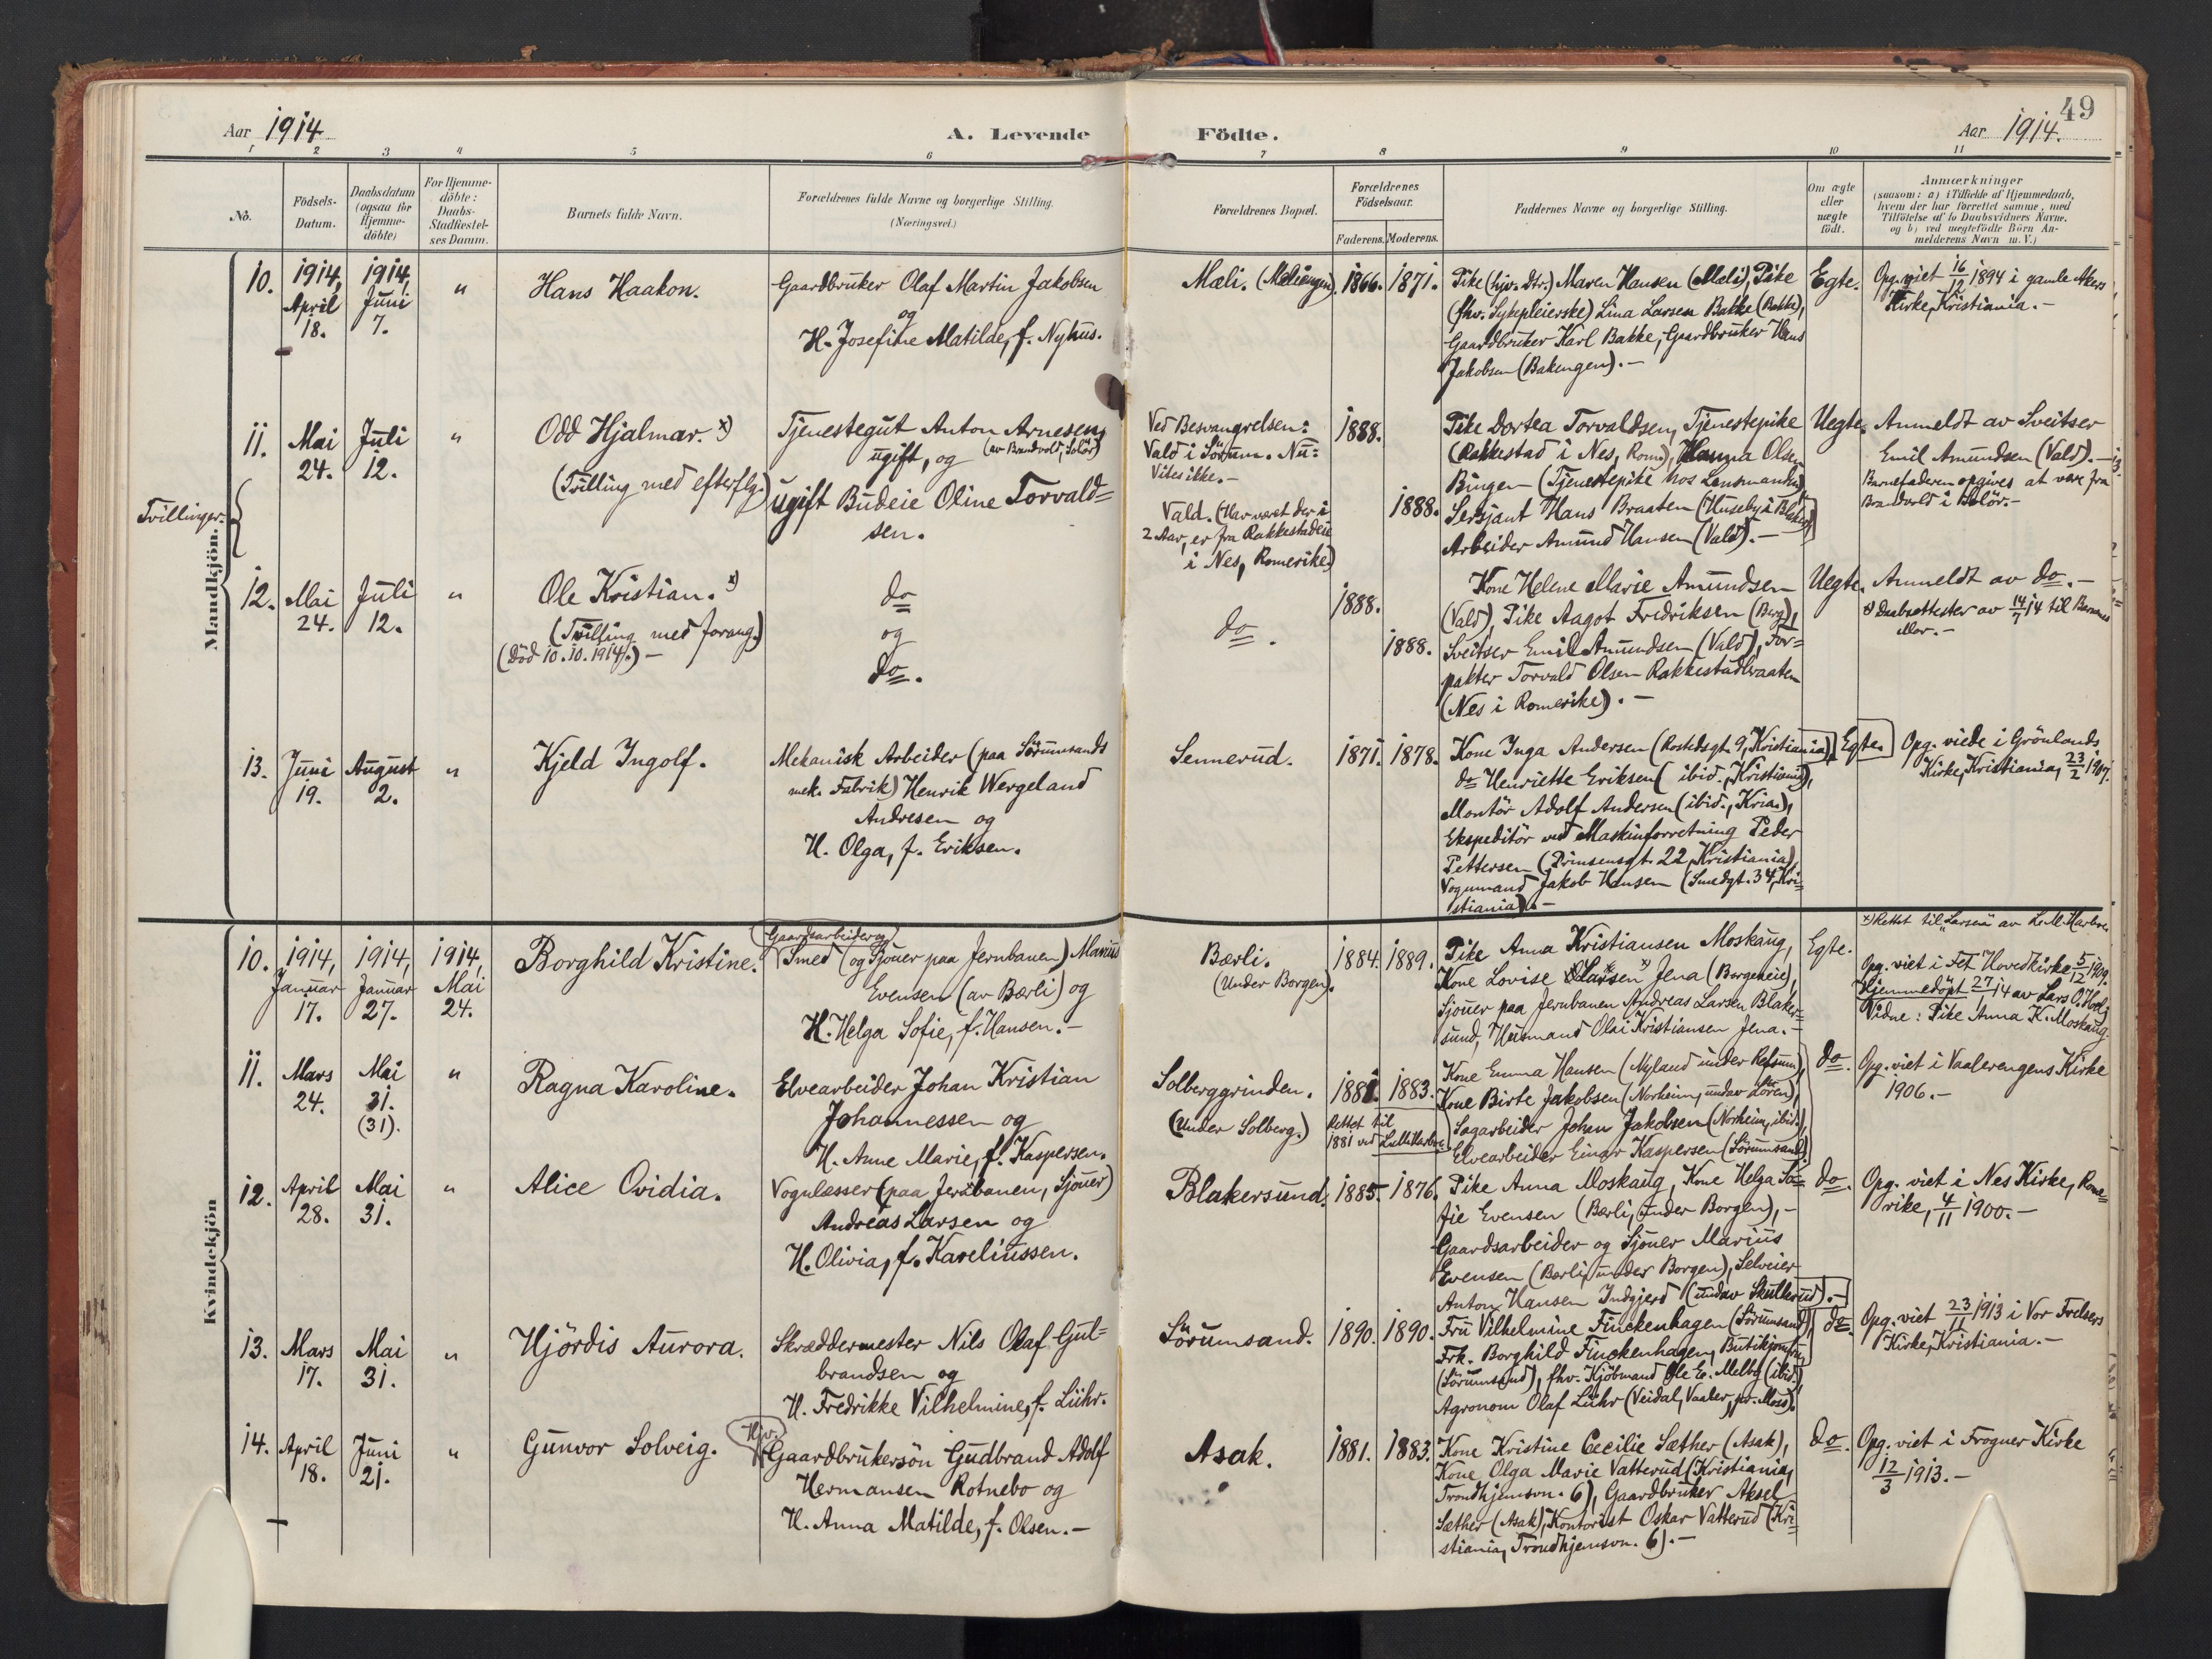 49
Aar 1914
A. Levende Födte.
Aar 1914.
1 2 3 4 5 6 7 8 9 10 11
No.
Födsels-
Datum.
Daabsdatum
(ogsaa for
Hjemme-
döbte)
For Hjemme-
döbte:
Daabs-
Stadfæstel-
ses Datum.
Barnets fulde Navn.
Forældrenes fulde Navne og borgerlige Stilling.
(Næringsvei.)
Forældrenes Bopæl.
Forældrenes
Födselsaar.
Faderens. Moderens.
Faddernes Navne og borgerlige Stilling.
Om ægte
eller
uægte
födt.
Anmærkninger
(saasom: a) i Tilfælde af Hjemmedaab,
hvem der har forrettet samme, med
Tilföielse af to Daabsvidners Navne,
og b) ved uegtefödte Börn An-
melderens Navn m. V.)
Mandkjön.
10.
1914,
April
18.
1914,
Juni
7.
"
Hans Haakon.
Gaardbruker Olaf Martin Jakobsen
og
H. Josefine Matilde, f. Nyhus.
Mæli. (Mæliengen).
1866. 1871.
Pike (hjv. Dtr.) Maren Hansen (Mæli), Pike
(fhv. Sykepleierske) Lina Larsen Bakke (Bakke),
Gaardbruker Karl Bakke, Gaardbruker Hans
Jakobsen (Bakengen). —
Egte.
Opg. viet 16/12 1894 i gamle Akers
Kirke, Kristiania. —
Tvillinger.
11.
Mai
24.
Juli
12.
"
Odd Hjalmar. x)
(Tvilling med efterflg.)
Tjenestegut Anton Arnesen,
ugift, og (av Brandvold, Solör)
ugift Budeie Oline Torvald=
sen.
Ved Besvangrelsen:
Vald i Sörum. Nu:
Vites ikke. —
Vald. (Har været der i
2 Aar, er fra Rakkestadeie
i Nes, Romerike)
1888.
1888.
Pike Dortea Torvaldsen, Tjenestepike
(Rakkestad i Nes, Rom.), Hanna Olsen
Bingen (Tjenestepike hos Lensmanden),
Sersjant Hans Braaten (Huseby i Blaker),
Arbeider Amund Hansen (Vald). —
Uegte.
Anmeldt av Sveitser
Emil Amundsen (Vald). —
Barnefaderen opgives at være fra
Brandvold i Solör. —
12.
Mai
24.
Juli
12.
"
Ole Kristian. x)
(Tvilling med forang.)
(Död 10.10.1914.) —
do
og
do.
do.
1888.
1888.
Kone Helene Marie Amundsen
(Vald), Pike Aagot Fredriksen (Berg),
Sveitser Emil Amundsen (Vald), For=
pakter Torvald Olsen Rakkestadbraaten
(Nes i Romerike). —
Uegte.
Anmeldt av do. —
x) Daabsattester av 14/7 14 til Barnenes
Mor. —
13.
Juni
19.
August
2.
"
Kjeld Ingolf.
Mekanisk Arbeider (paa Sörumsands
mek. Fabrik) Henrik Wergeland
Andresen og
H. Olga, f. Eriksen.
Sennerud.
1871. 1878.
Kone Inga Andersen (Rostedsgt. 9, Kristiania),
do Henriette Eriksen (ibid., Kristiania),
Montör Adolf Andersen (ibid., Kria.),
Ekspeditör ved Maskinforretning Peder
Pettersen (Prinsensgt. 22, Kristiania),
Vognmand Jakob Hansen (Smedgt. 34, Kri=
stiania). —
Egte.
Opg. viede i Grönlands
Kirke, Kristiania, 23/2 1907.
Kvindekjön
10.
1914,
Januar
17.
1914,
Januar
27.
1914,
Mai
24.
Borghild Kristine.
Gaardsarbeider og
Smed (og Sjouer paa Jernbanen) Marius
Evensen (av Bærli) og
H. Helga Sofie, f. Hansen. —
Bærli.
(Under Borgen).
1884. 1889.
Pike Anna Kristiansen Moskaug,
Kone Lovise Larsen x) Jena (Borgeneie),
Sjouer paa Jernbanen Andreas Larsen Blaker=
sund, Husmand Olai Kristiansen Jena. —
Egte.
x) Rettet til "Larsen" av
Opg. viet i Fet Hovedkirke 5/12 1909.
Hjemmedöpt 27/1 14 av Lars O.
Vidne: Pike Anna K. Moskaug
11.
Mars
24.
Mai
31.
(31).
"
Ragna Karoline.
Elvearbeider Johan Kristian
Johannessen og
H. Anne Marie, f. Kaspersen.
Solberggrinden.
(Under Solberg.)
1881. 1883.
Rettet til
1881 ved
Kone Emma Hansen (Nyland under Refsum),
Kone Birte Jakobsen (Norheim, under Lören),
Sagarbeider Johan Jakobsen (Norheim, ibid.),
Elvearbeider Einar Kaspersen (Sörumsand).
do.
Opg. viet i Vaalerengens Kirke
1906. —
12.
April
28.
Mai
31.
"
Alice Ovidia.
Vognlæsser (paa Jernbanen, Sjouer)
Andreas Larsen og
H. Olivia, f. Kareliussen.
Blakersund.
1885. 1876.
Pike Anna Moskaug, Kone Helga So=
fie Evensen (Bærli, under Borgen), —
Gaardsarbeider og Sjouer Marius
Evensen (Bærli, under Borgen), Selveier
Anton Hansen Indgjerd (under Skullerud). —
do.
Opg. viet i Nes Kirke, Rome=
rike, 4/11 1900. —
13.
Mars
17.
Mai
31.
"
Hjördis Aurora.
Skræddermester Nils Olaf Gul=
brandsen og
H. Fredrikke Vilhelmine, f. Lühr.
Sörumsand.
1890. 1890.
Fru Vilhelmine Finckenhagen (Sörumsand),
Frk. Borghild Finckenhagen, Butikjomfru
(Sörumsand), fhv. Kjöbmand Ole E. Melby (ibid.),
Agronom Olaf Lühr (Veidal, Vaaler, pr. Moss).
do.
Opg. viet 23/11 1913 i Vor Frelsers
Kirke, Kristiania. —
14.
April
18.
Juni
21.
"
Gunvor Solveig.
Hjv.
Gaardbrukersön Gudbrand Adolf
Hermansen Rotnebo og
H. Anna Matilde, f. Olsen. —
Asak.
1881. 1883.
Kone Kristine Cecilie Sæther (Asak),
Kone Olga Marie Vatterud (Kristiania,
Trondhjemsvn. 6), Gaardbruker Aksel
Sæther (Asak), Kontorist Oskar Vatterud (Kri=
stiania, Trondhjemsvn. 6). —
do.
Opg. viet i Frogner Kirke
12/3 1913. —